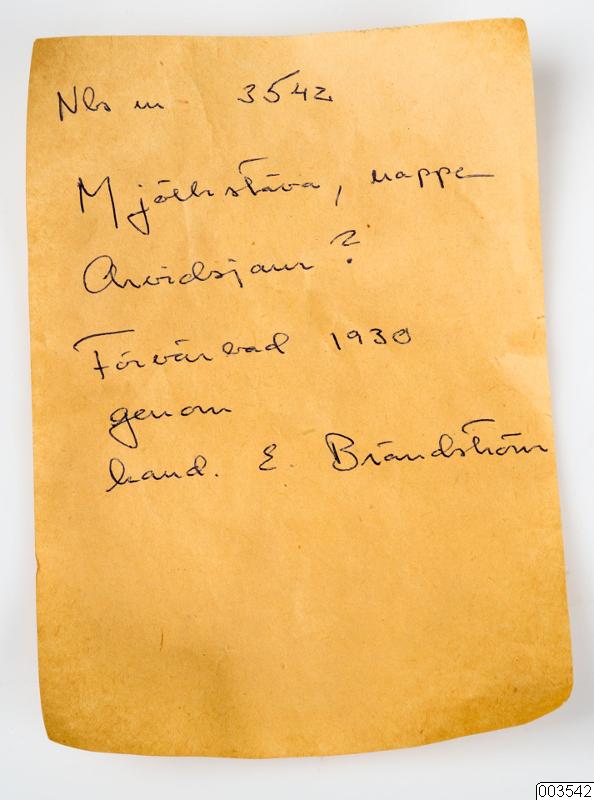 Nbs m 3542
Mjölkstäva, nappe
Arvidsjaur?
Förvärvad 1930
genom
kand. E. Brändström
003542